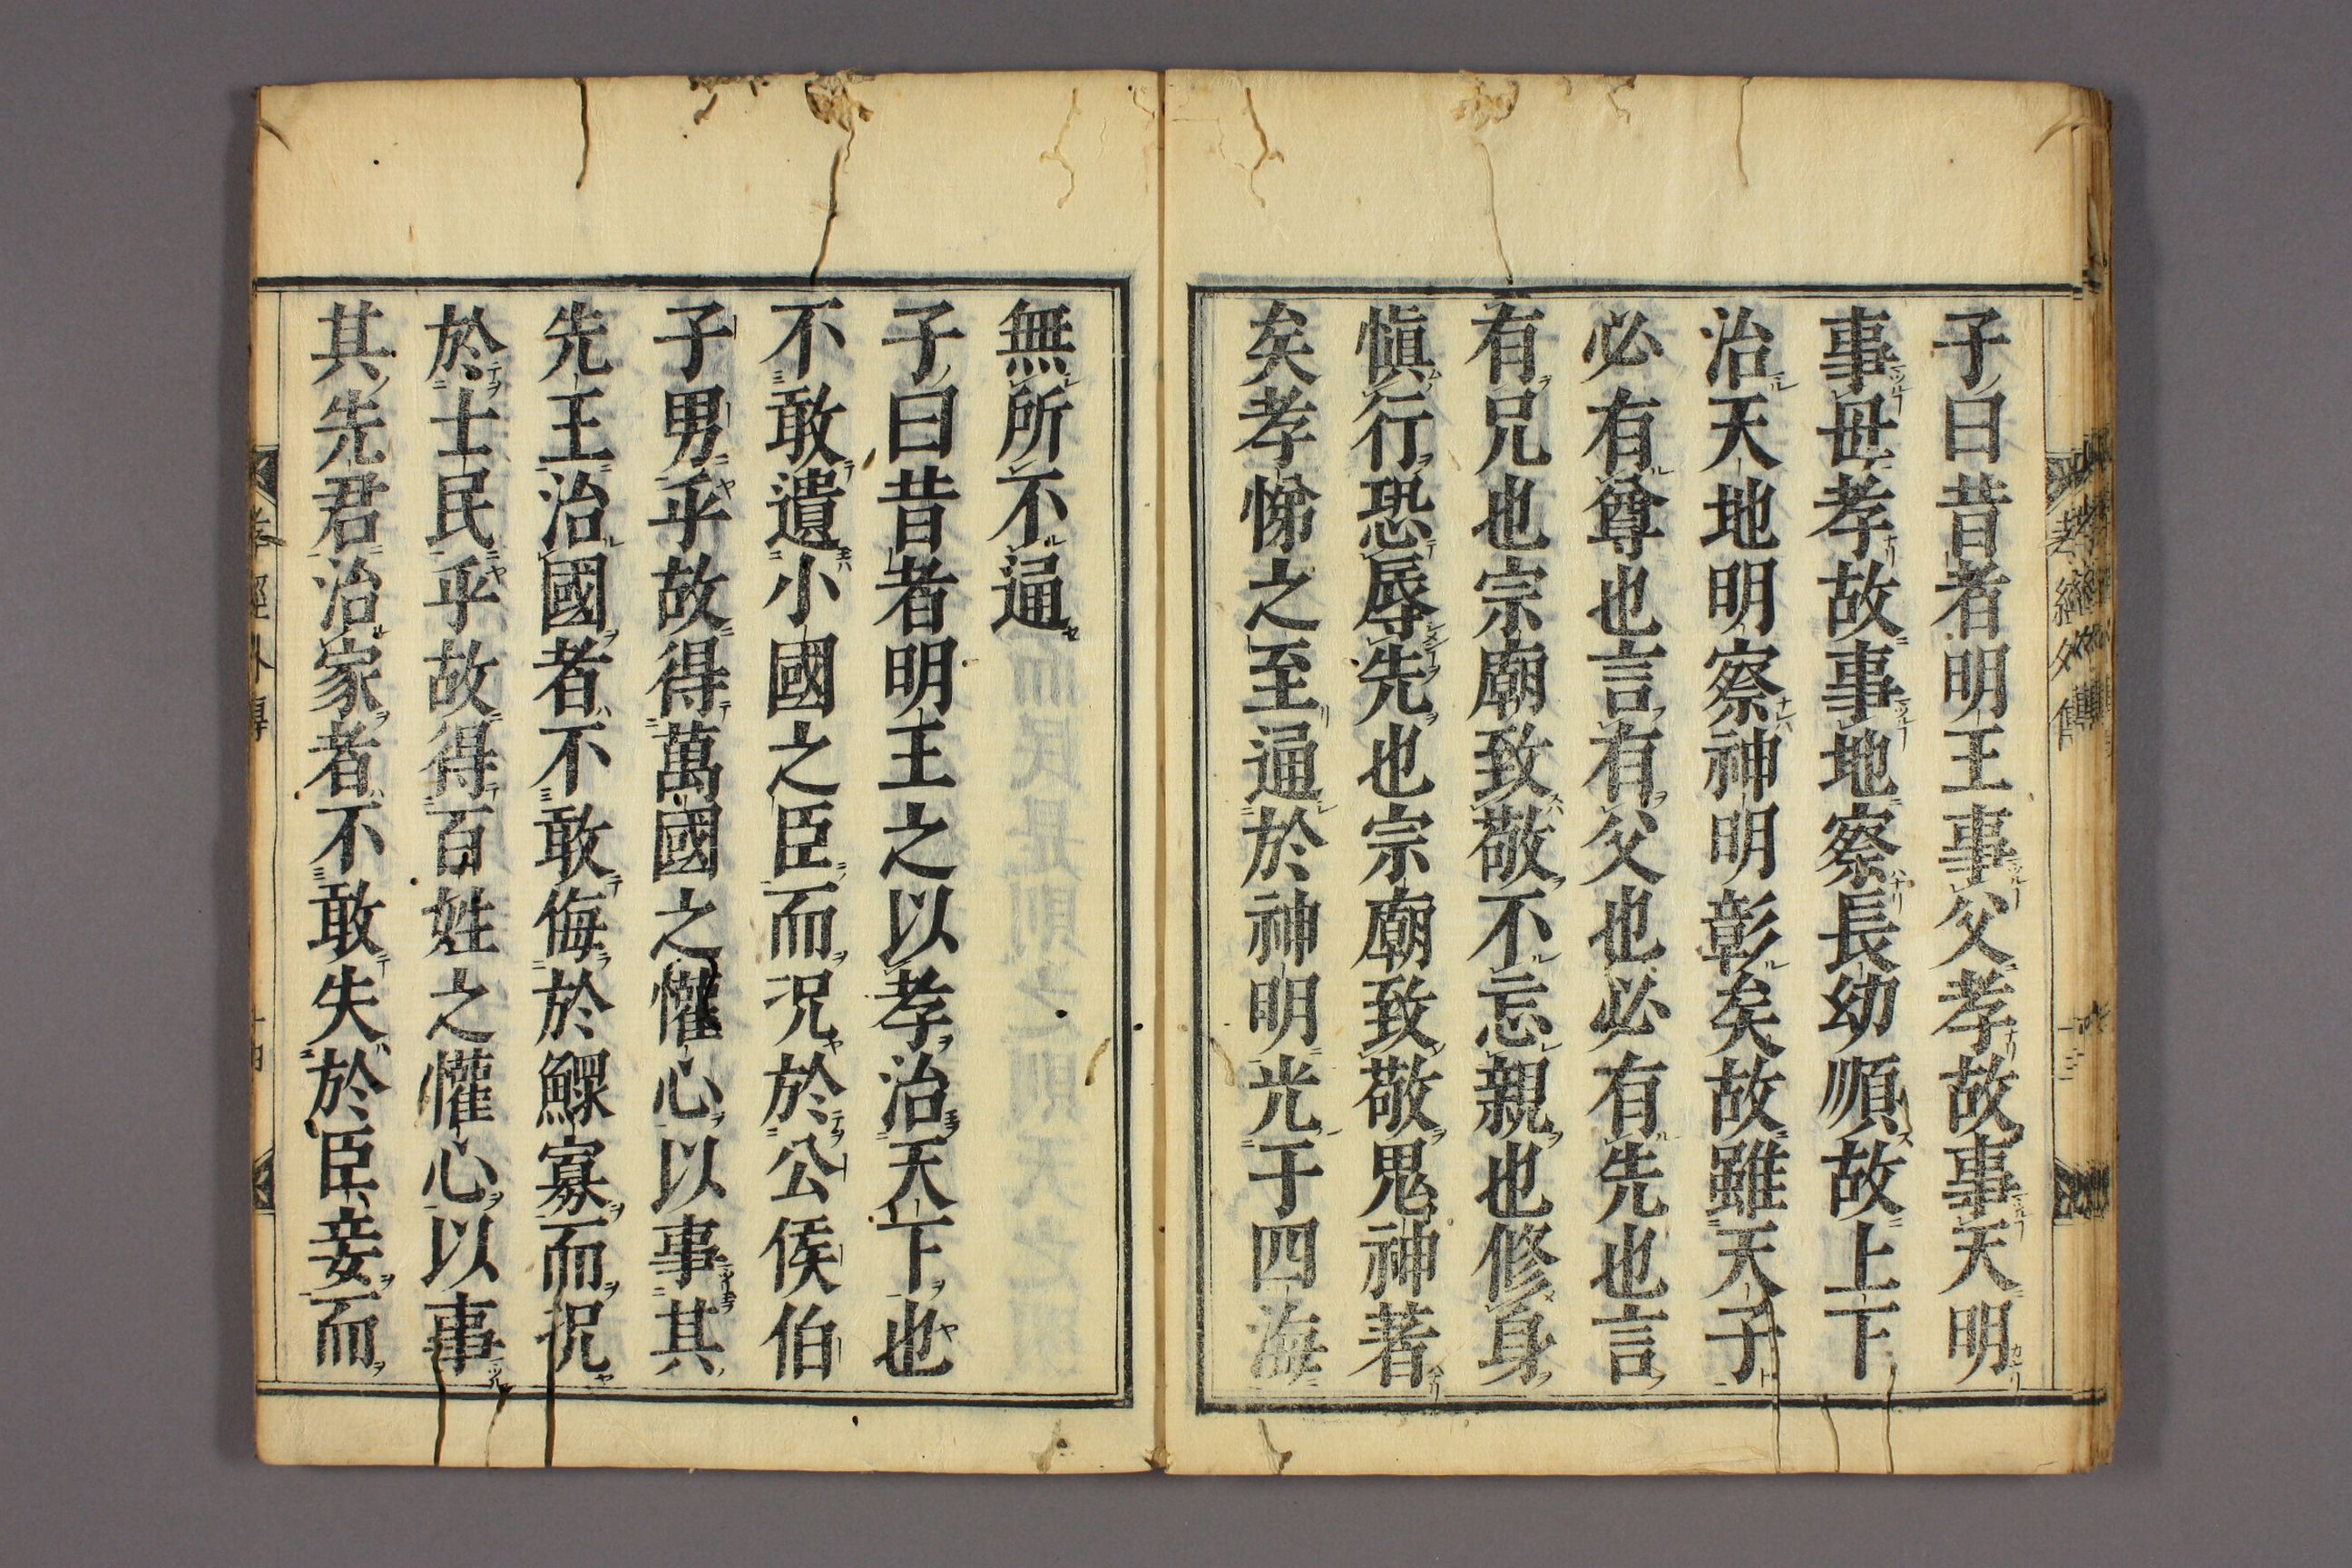 子曰昔者明王事父孝故事天明
事母孝故事地察長幼順故上下
治天地明察神明彰矣故雖天子
必有尊也言有父也必有先也言
有兄也宗廟致敬不忘親也修身
愼行恐辱先也宗廟致敬鬼神著
矣孝悌之至通於神明光于四海
無所不通
子曰昔者明王之以孝治天下也
不敢遺小國之臣而況於公侯伯
子男乎故得萬國之懽心以事其
先王治國者不敢侮於鰥寡而況
於士民乎故得百姓之懽心以事
其先君治家者不敢失於臣妾而
孝經外傳